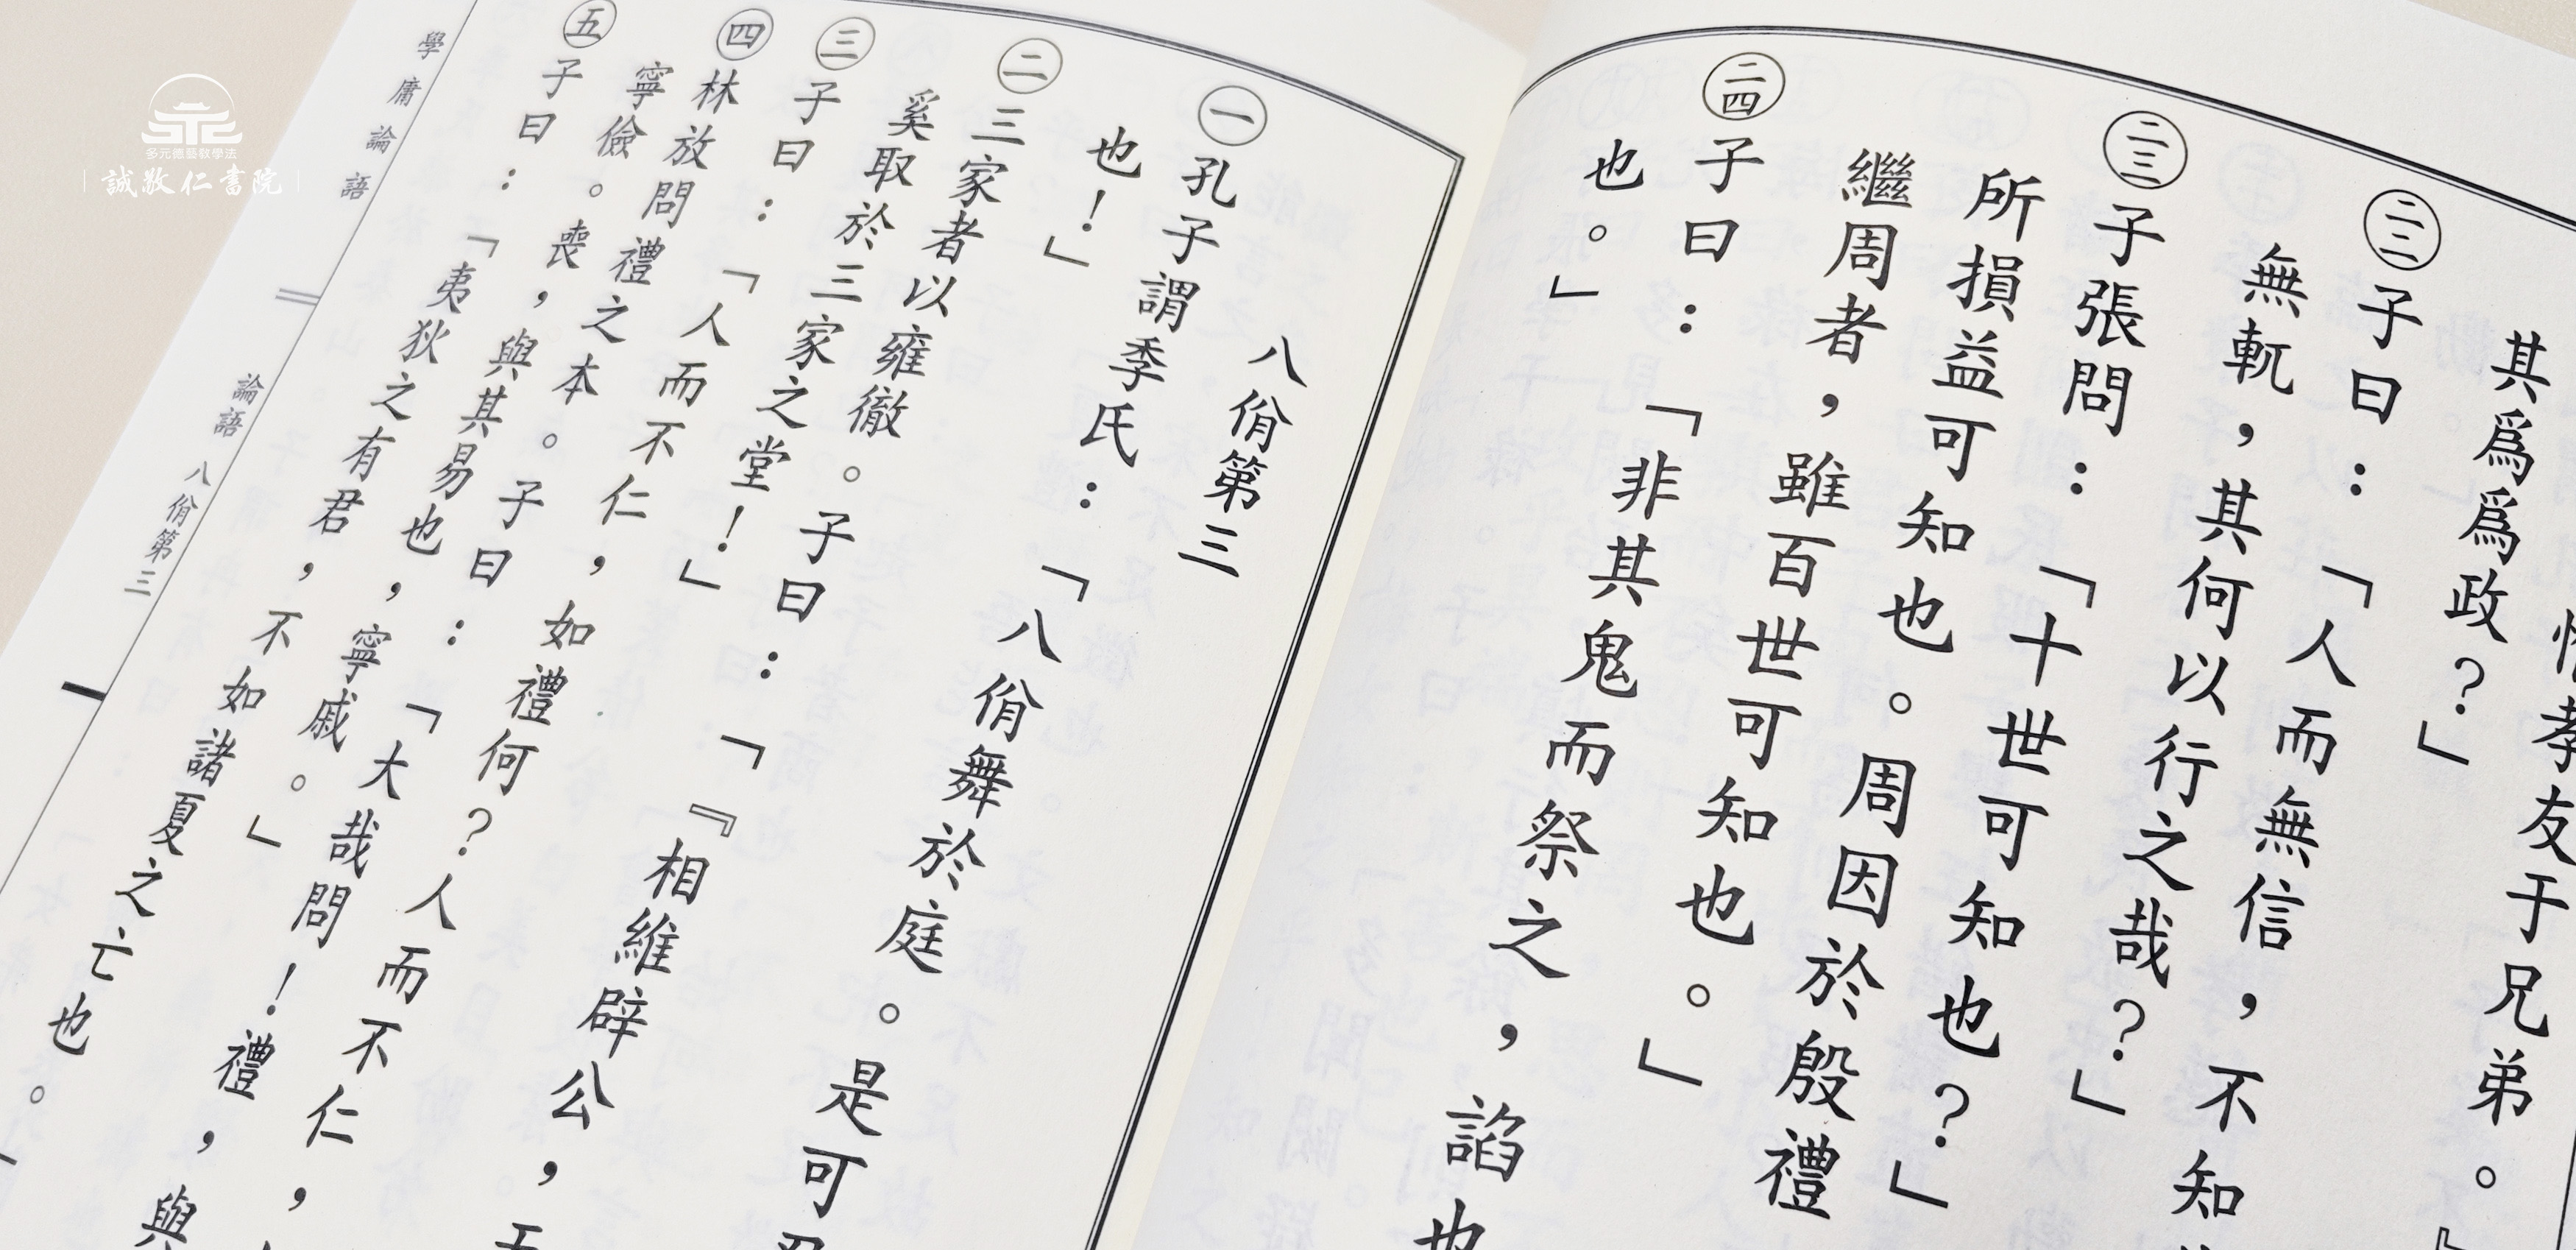 孝友于兄弟。
其爲爲政？」
二二 子曰：「人而無信，不知
無軏，其何以行之哉？」
二三 子張問：「十世可知也？」
所損益可知也。周因於殷禮
繼周者，雖百世可知也。」
二四 子曰：「非其鬼而祭之，諂也
也。」
八佾第三
一 孔子謂季氏：「八佾舞於庭。是可忍
也！」
二 三家者以雍徹。子曰：「『相維辟公，
奚取於三家之堂！」
三 子曰：「人而不仁，如禮何？人而不仁，
四 林放問禮之本。子曰：「大哉問！禮，與
寧儉。喪，與其易也，寧戚。」
五 子曰：「夷狄之有君，不如諸夏之亡也。
學庸論語
論語 八佾第三
多元德藝教學法
誠敬仁書院